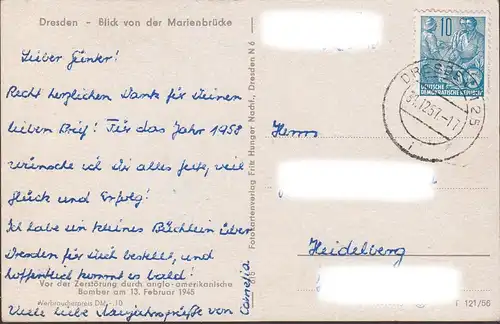 Dresden – Blick von der Marienbrücke
Lieber Günter!
Recht herzlichen Dank für Deinen
lieben Brief! Für das Jahr 1958
wünsche ich Dir alles Gute, viel
Glück und Erfolg!
Ich habe ein kleines Büchlein über
Dresden für Dich bestellt, und
hoffentlich kommt es bald!
Vor der Zerstörung durch anglo-amerikanische
Bomber am 13. Februar 1945
Verbraucherpreis DM -.10
Viele liebe Neujahrsgrüße von
Fotokartenverlag Fritz Hunger Nachf., Dresden N 6
10
DEUTSCHE
DEMOKRATISCHE REPUBLIK
DRESDEN A 25
31.12.57.-17
Herrn
Heidelberg
T 121/56